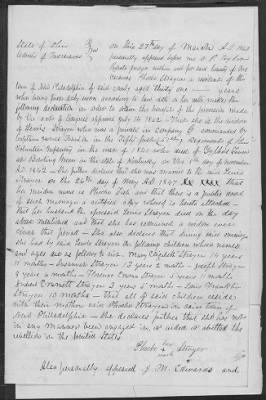 State of Ohio } on this 25th day of March A.D. 1863
County of Tuscarawas } SS personally appeared before me
within and for said County of Tus-
carawas Phebe Strayer a resident of the
town of New Philadelphia of said County aged thirty one years
who being duly sworn according to law doth on her oath make the
following declaration in order to obtain the benefits of the provision made
by the acts of Congress approved July 14 1862 - That she is the widow
of Lewis Strayer who was a private in Company commanded by
Captain in the Fifty first Regiment of Ohio
Volunteer Infantry in the war of 1861 who died of Typhoid Fever
at Bowling Green in the state of Kentucky on the day of November
A.D. 1862 - She further declares that she was married to the said Lewis
Strayer on the 26th day of May A.D. 1847 that
her maiden name was Phebe Fish and that there is a public record
of such marriage a certified copy whereof is hereto attached -
that her husband the aforesaid Lewis Strayer died on the day
above mentioned and that she has remained a widow ever
since that period - She also declares that during her marriage
she has by said Lewis Strayer the following children whose names
and ages are as follows to wit. Mary Elizabeth Strayer 14 years
11 months - Susannah Strayer 13 years 2 months - Joseph Strayer
9 years months - Florence Emma Strayer 5 years 11 months
Strayer 3 years 5 months - Louis Franklin
Strayer 10 months - that all of said children reside
with their mother said Phebe Strayer in said town of
New Philadelphia - She declares further that she has not
in any manner been engaged in, or aided or abetted the
rebellion in the United States
Phebe her X mark Strayer
Also personally appeared J. M. Edwards and